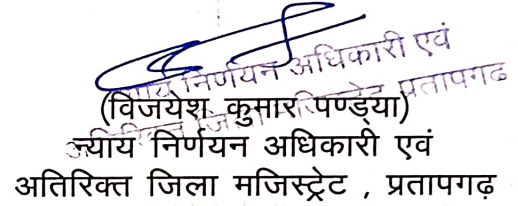 न्याय निर्णयन अधिकारी एवं
अतिरिक्त जिला मजिस्ट्रेट प्रतापगढ
(विजयेश कुमार पण्ड्या)
न्याय निर्णयन अधिकारी एवं
अतिरिक्त जिला मजिस्ट्रेट , प्रतापगढ़